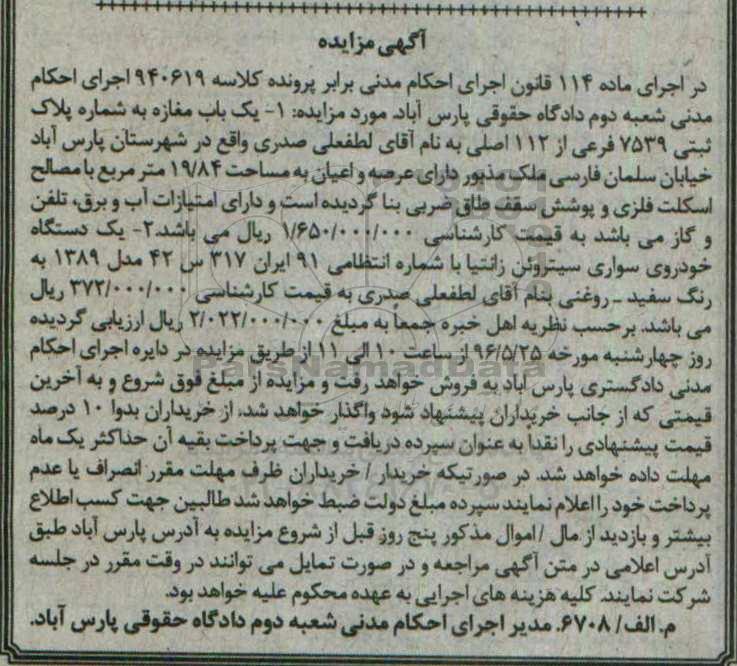 آگهی مزایده
در اجرای ماده ۱۱۴ قانون اجرای احکام مدنی برابر پرونده کلاسه ۹۴۰۶۱۹ اجرای احکام
مدنی شعبه دوم دادگاه حقوقی پارس آباد. مورد مزایده: ۱- یک باب مغازه به شماره پلاک
ثبتی ۷۵۳۹ فرعی از ۱۱۲ اصلی به نام آقای لطفعلی صدری واقع در شهرستان پارس آباد
خیابان سلمان فارسی ملک مذبور دارای عرصه و اعیان به مساحت ۱۹/۸۴ متر مربع با مصالح
اسکلت فلزی و پوشش سقف طاق ضربی بنا گردیده است و دارای امتیازات آب و برق، تلفن
و گاز می باشد به قیمت کارشناسی ۱/۶۵۰/۰۰۰/۰۰۰ ریال می باشد.۲- یک دستگاه
خودروی سواری سیتروئن زانتیا با شماره انتظامی ۹۱ ایران ۳۱۷ س ۴۲ مدل ۱۳۸۹ به
رنگ سفید ـ روغنی بنام آقای لطفعلی صدری به قیمت کارشناسی ۳۷۲/۰۰۰/۰۰۰ ریال
می باشد. برحسب نظریه اهل خبره جمعاً به مبلغ ۲/۰۲۲/۰۰۰/۰۰۰ ریال ارزیابی گردیده
روز چهارشنبه مورخه ۹۶/۵/۲۵ از ساعت ۱۰ الی ۱۱ از طریق مزایده در دایره اجرای احکام
مدنی دادگستری پارس آباد به فروش خواهد رفت و مزایده از مبلغ فوق شروع و به آخرین
قیمتی که از جانب خریداران پیشنهاد شود واگذار خواهد شد، از خریداران بدوا ۱۰ درصد
قیمت پیشنهادی را نقداً به عنوان سپرده دریافت و جهت پرداخت بقیه آن حداکثر یک ماه
مهلت داده خواهد شد. در صورتیکه خریدار / خریداران ظرف مهلت مقرر انصراف یا عدم
پرداخت خود را اعلام نمایند سپرده مبلغ دولت ضبط خواهد شد طالبین جهت کسب اطلاع
بیشتر و بازدید از مال / اموال مذکور پنج روز قبل از شروع مزایده به آدرس پارس آباد طبق
آدرس اعلامی در متن آگهی مراجعه و در صورت تمایل می توانند در وقت مقرر در جلسه
شرکت نمایند. کلیه هزینه های اجرایی به عهده محکوم علیه خواهد بود.
م. الف/ ۶۷۰۸. مدیر اجرای احکام مدنی شعبه دوم دادگاه حقوقی پارس آباد.
ParsNamadData